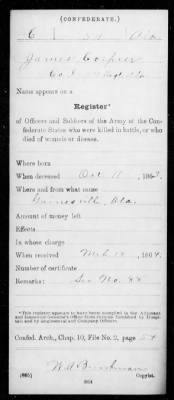 (CONFEDERATE.)
C 59 Ala
James Cooper
Co. I, 59 Regt. Ala
Name appears on a
Register*
of Officers and Soldiers of the Army of the Confederate States who were killed in battle, or who
died of wounds or disease.
Where born
When deceased Oct 11, 1863.
Where and from what cause
Gainesville, Ala.
Amount of money left
Effects
In whose charge
When received Mch 12, 1864.
Number of certificate
Remarks: See No. 88
*This register appears to have been compiled in the Adjutant
and Inspector General's Office from returns furnished by Hospital
and by Regimental and Company Officers.
Confed. Arch., Chap. 10, File No. 2, page 54
W. A. Brinkman
(605) Copyist.